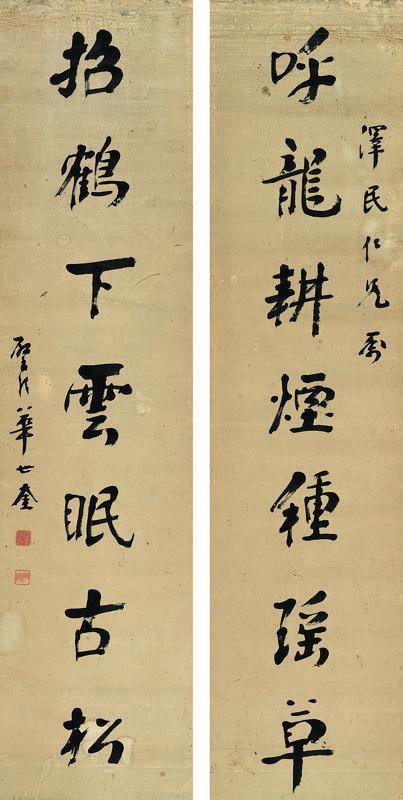 澤民仁兄屬
呼龍耕煙種瑤草
招鶴下雲眠古松
華世奎